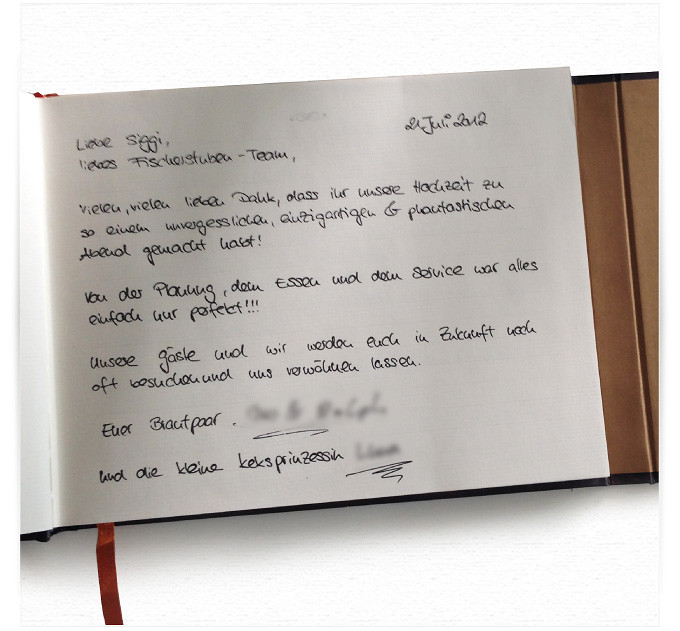 21 Juli 2012
Liebe Siggi,
liebes Fischerstuben-Team,
vielen, vielen lieben Dank, dass ihr unsere Hochzeit zu
so einem unvergesslichen, einzigartigen & phantastischen
Abend gemacht habt!
Von der Planung, dem Essen und dem Service war alles
einfach nur perfekt!!!
Unsere Gäste und wir werden euch in Zukunft noch
oft besuchen und uns verwöhnen lassen.
Euer Brautpaar.
und die kleine Keksprinzessin